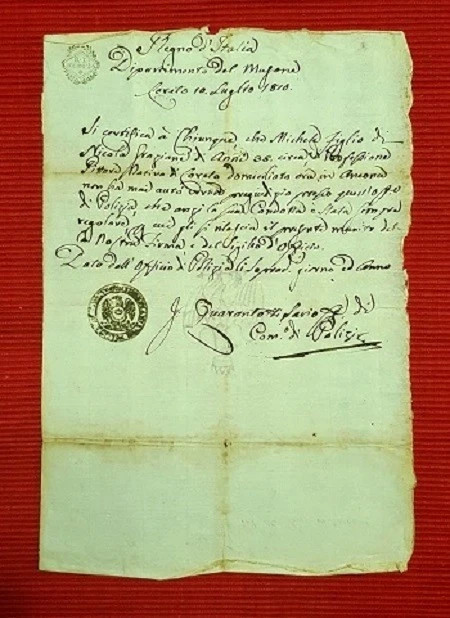 Regno d'Italia
Dipartimento del Musone
Loreto 10. Luglio 1810.
Si certifica à Chiunque, che Michele Figlio di
Nicola Graziani di Anni 38. circa, di Professione
Pittore, Nativo di Loreto domiciliato ora in Ancona
non ha mai auto presso quest'Off.º
di Polizia, che anzi la sua Condotta è stata sempre
regolare. gli si rilascia il presente munito del-
la Nostra Firma e del Sigillo d'Officio.
Dato dall'Officio di Polizia li Soprad. giorno ed Anno
Com.º di Polizia